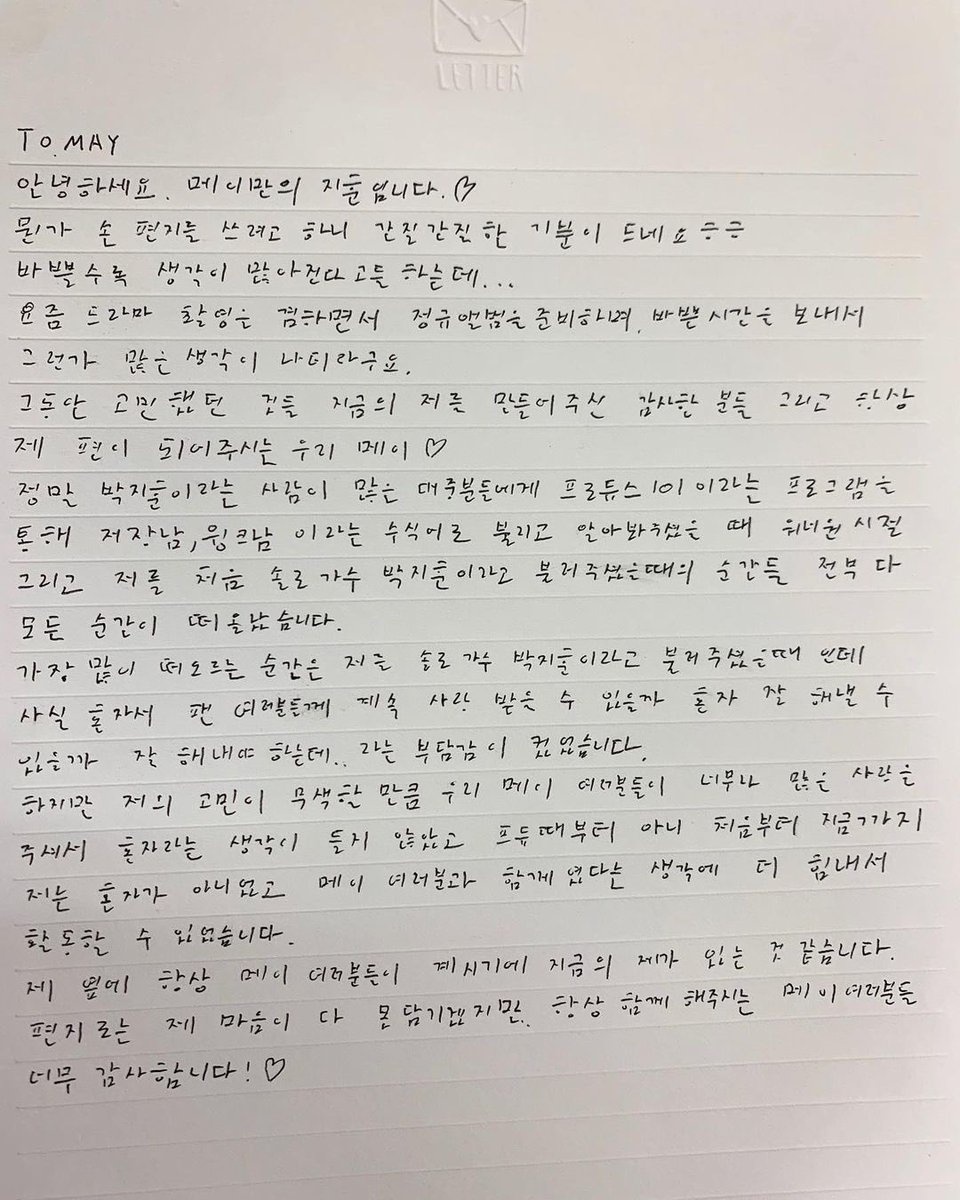 LETTER
TO.MAY
안녕하세요. 메이만의 지훈입니다.♡
뭔가 손 편지를 쓰려고 하니 간질간질한 기분이 드네요ㅎㅎ
바쁠수록 생각이 많아진다고들 하는데...
요즘 드라마 촬영을 겸하면서 정규앨범을 준비하며, 바쁜시간을 보내서
그런가 많은 생각이 나더라구요.
그동안 고민했던 것들 지금의 저를 만들어주신 감사한 분들 그리고 항상
제 편이 되어주시는 우리 메이♡
정말 박지훈이라는 사람이 많은 대중분들에게 프로듀스101이라는 프로그램을
통해 저장남, 윙크남 이라는 수식어로 불리고 알아봐주셨을 때 워너원 시절
그리고 저를 처음 솔로가수 박지훈이라고 불러주셨을때의 순간들 전부 다
모든 순간이 떠올랐습니다.
가장 많이 떠오르는 순간은 저를 솔로 가수 박지훈이라고 불러주셨을때 인데
사실 혼자서 팬 여러분들께 계속 사랑 받을 수 있을까 혼자 잘 해낼 수
있을까 잘 해내야 하는데.. 라는 부담감이 컸었습니다.
하지만 저의 고민이 무색할 만큼 우리 메이 여러분들이 너무나 많은 사랑을
주셔서 혼자라는 생각이 들지 않았고 프듀때부터 아니 처음부터 지금까지
저는 혼자가 아니었고 메이 여러분과 함께였다는 생각에 더 힘내서
활동할 수 있었습니다.
제 옆에 항상 메이 여러분들이 계시기에 지금의 제가 있는 것 같습니다.
편지로는 제 마음이 다 못담기겠지만. 항상 함께 해주시는 메이여러분들
너무 감사합니다!♡